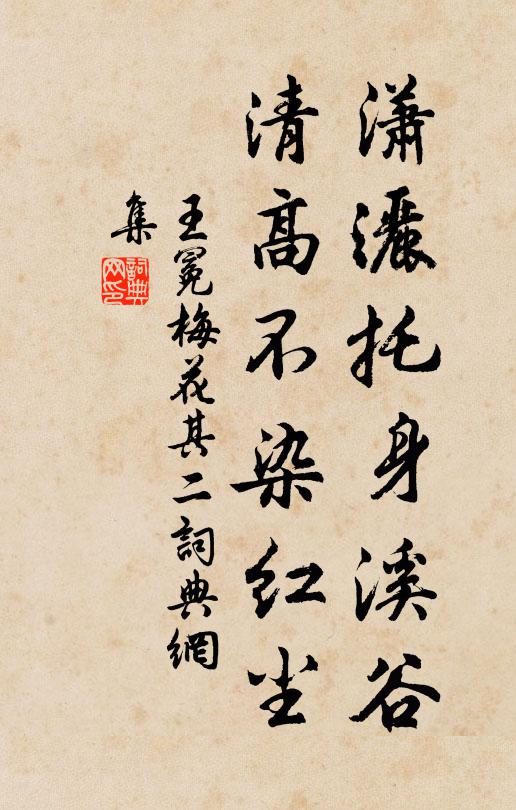 瀟灑托身溪谷
清高不染紅尘
王冕梅花其二詞典網
集
詞典
网印